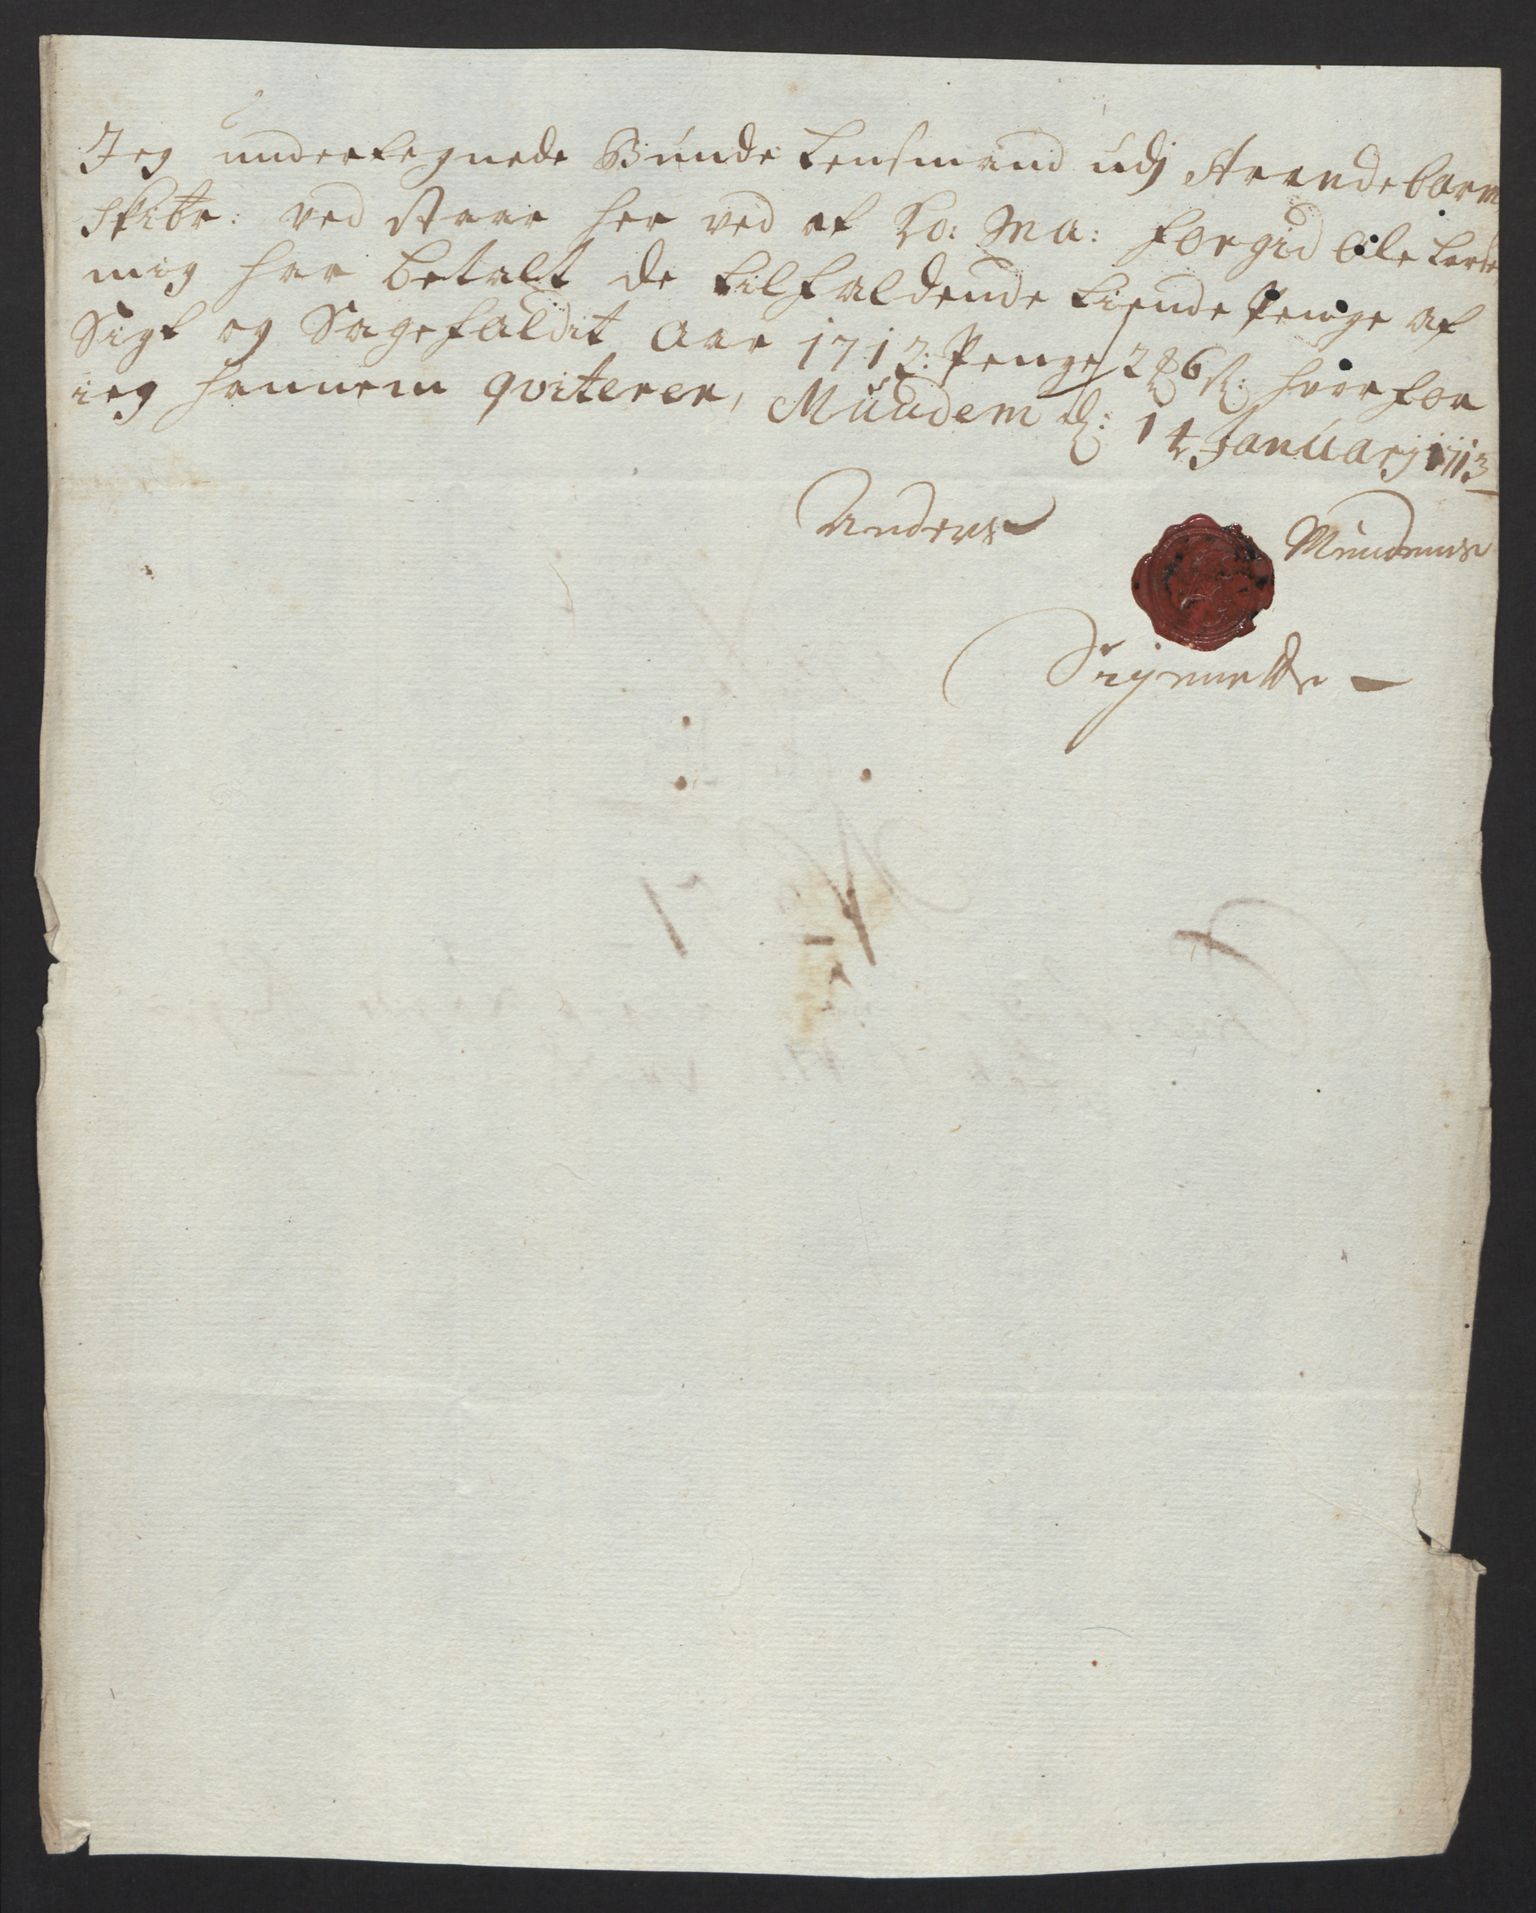 Jeg undertegnede Bunde Lensmand udj Strandebarm
Skibr: ved staar her ved at Ko: Ma: Fougid Ole Larsen
mig har betalt de tilfaldende tiende Penge af
Sigt og Sagefaldit Aar 1712: Penge 2 6 s: hvorfor
ieg hannem qviterer, Muudem d: 14 Januarj 1713
Anders Muudem